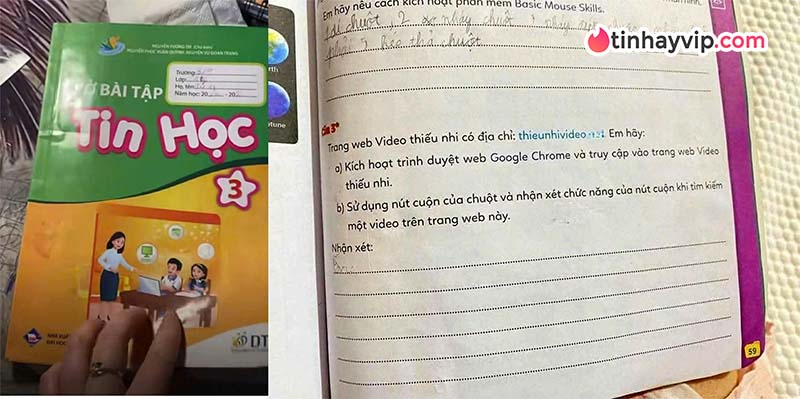 NGUYỄN TƯƠNG TRI (CHỦ BIÊN)
NGUYỄN PHÚC XUÂN QUỲNH, NGUYỄN VÕ ĐOAN TRANG
VỞ BÀI TẬP
Trường:
Lớp:
Họ, tên:
Năm học: 20 - 20
Tin Học
3
NHÀ XUẤT
ĐẠI HỌC
DT
rth
ptune
Em hãy nêu cách kích hoạt phần mềm Basic Mouse Skills.
chuột 2 nháy chuột
phải 5 kéo thả chuột
tinhayvip.com
Câu 3*
Trang web Video thiếu nhi có địa chỉ: thieunhivideo Em hãy:
a) Kích hoạt trình duyệt web Google Chrome và truy cập vào trang web Video
thiếu nhi.
b) Sử dụng nút cuộn của chuột và nhận xét chức năng của nút cuộn khi tìm kiếm
một video trên trang web này.
Nhận xét:
59